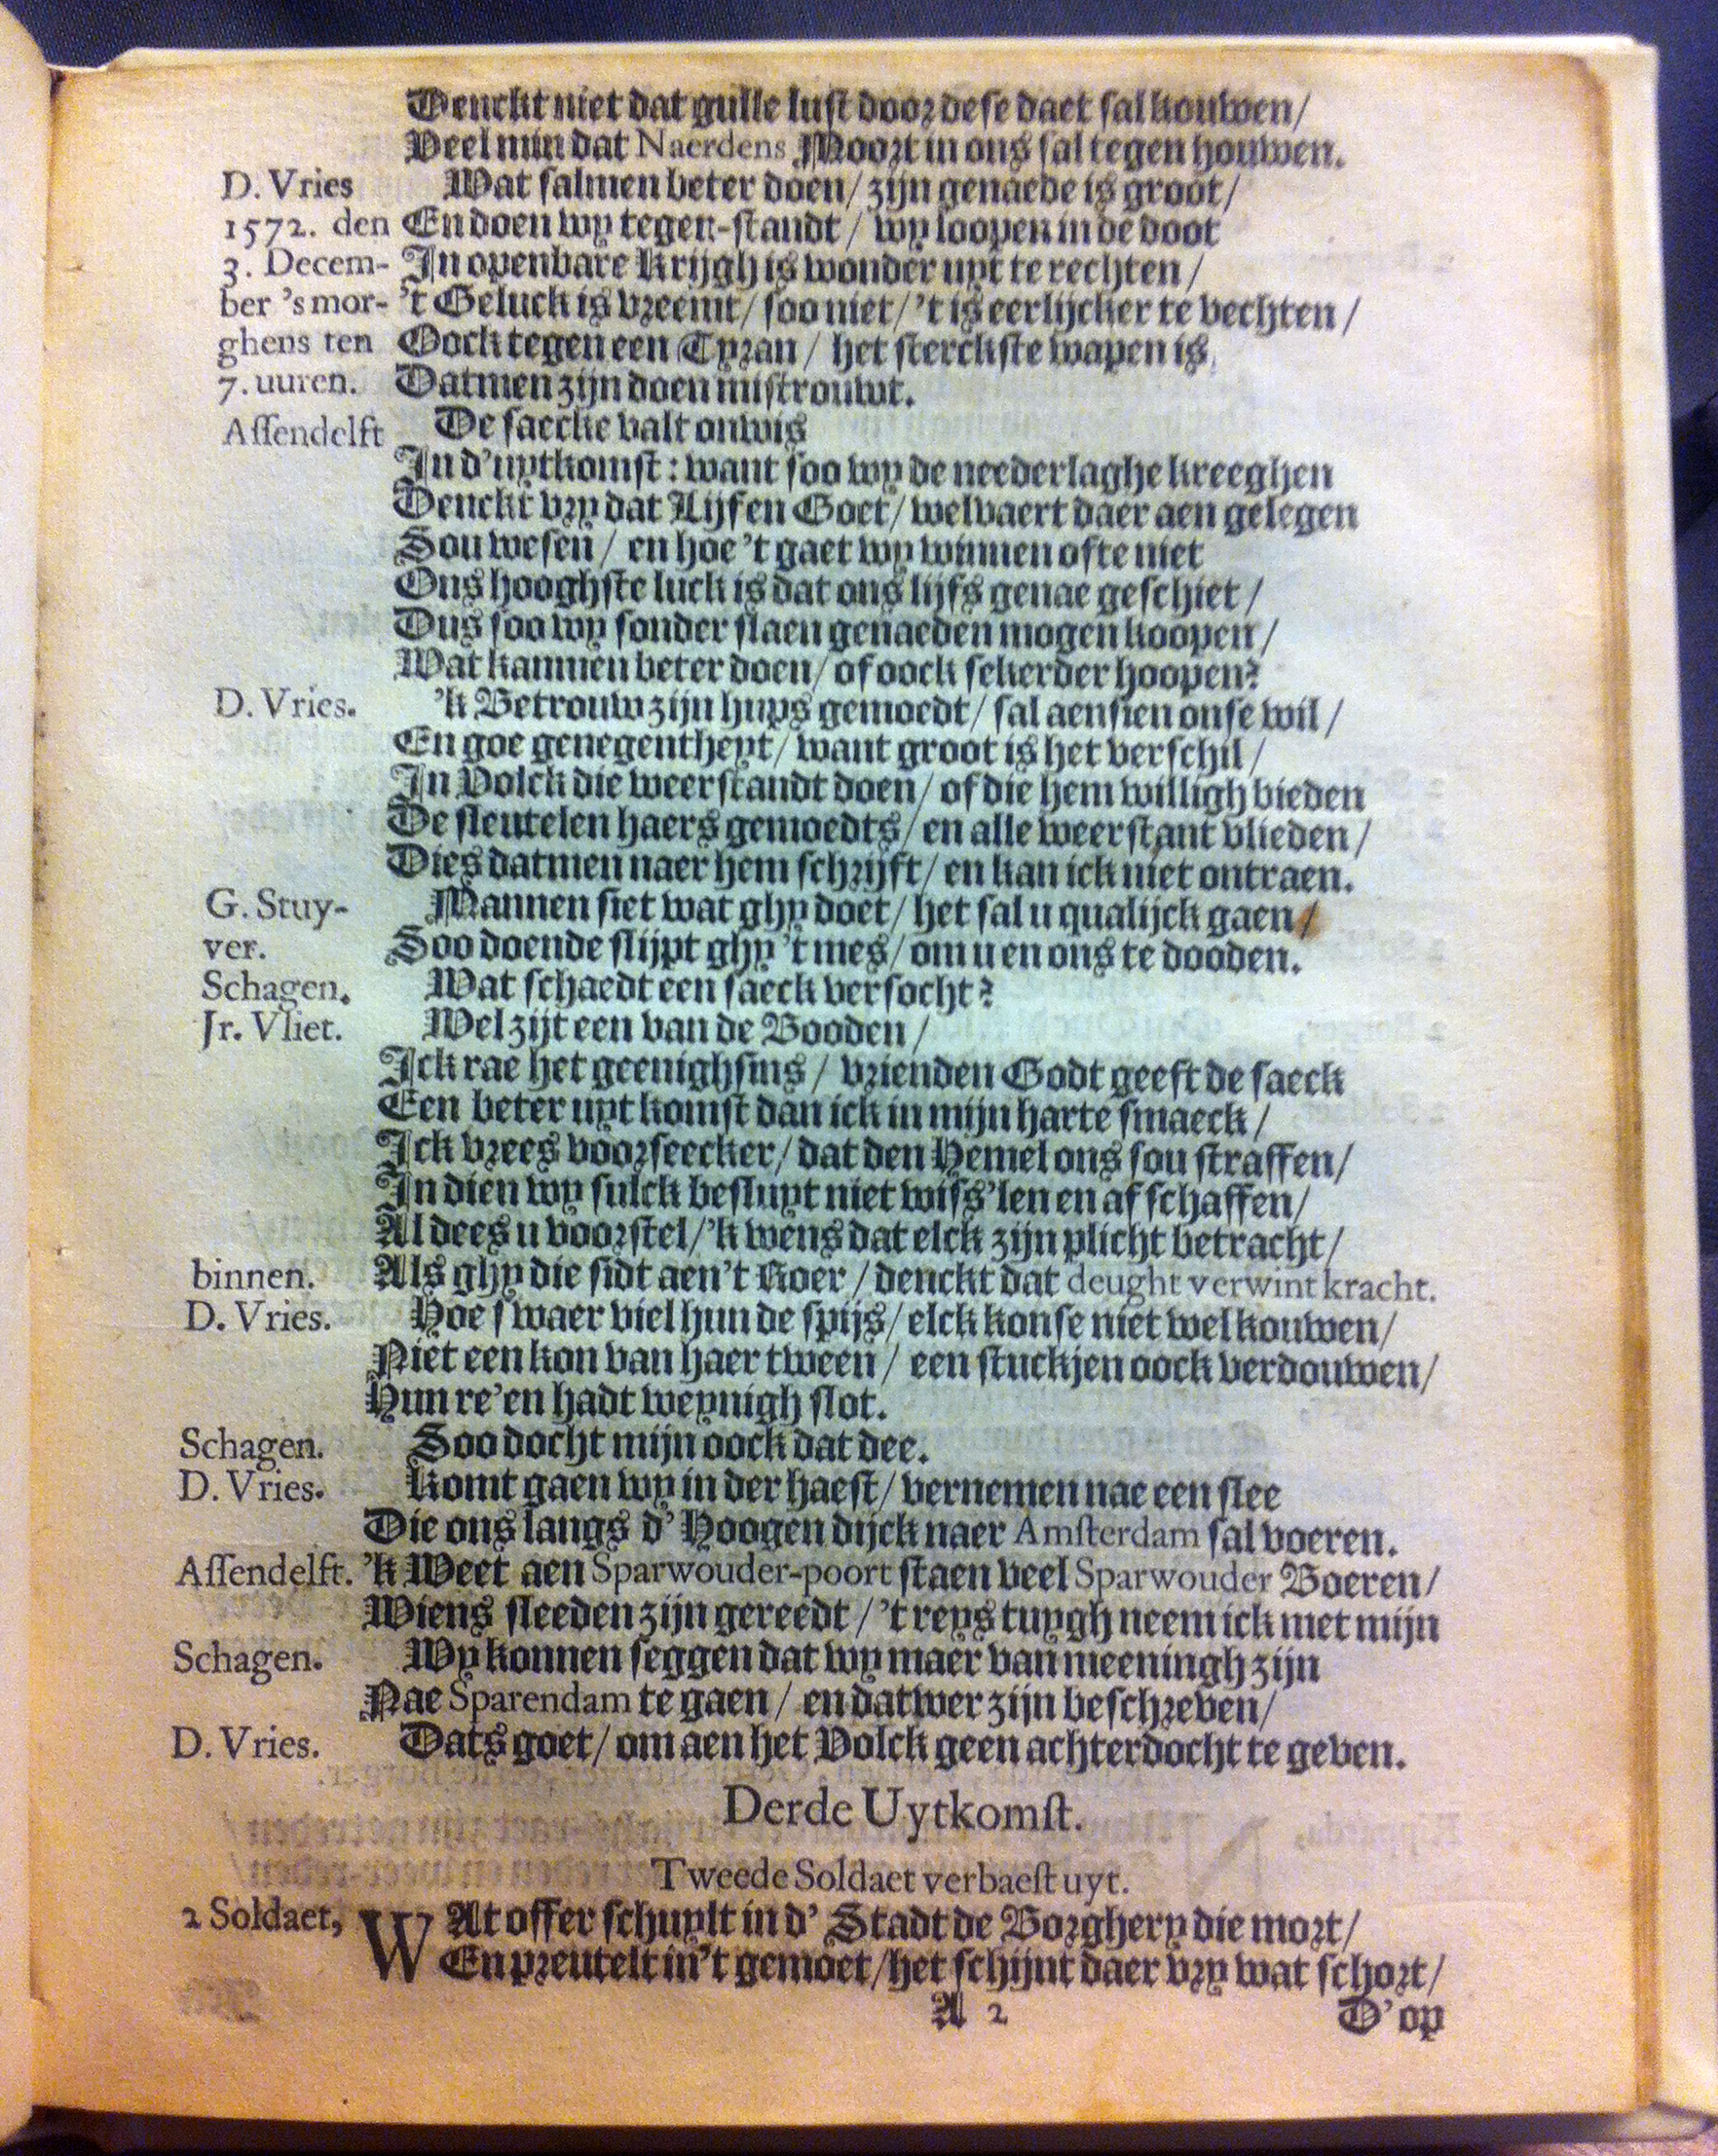 Denckt niet dat gulle lust door dese daet sal kouwen/
Veel min dat Naerdens Moort in ons sal tegen houwen.
D. Vries Wat salmen beter doen/ zijn genaede is groot/
1572. den En doen wy tegen-standt/ wy loopen in de doot
3. Decem- In openbare Krijgh is wonder uyt te rechten/
ber 's mor- 't Geluck is vreemt/ soo niet/ 't is eerlijcker te vechten/
ghens ten Oock tegen een Tyran/ het sterckste wapen is
7. uuren. Datmen zijn doen mistrouwt.
Assendelft De saecke valt onwis
In d'uytkomst: want soo wy de neederlaghe kreeghen
Denckt vry dat Lijf en Goet/ welvaert daer aen gelegen
Sou wesen/ en hoe 't gaet wy winnen ofte niet
Ons hooghste luck is dat ons lijfs genae geschiet/
Dus soo wy sonder slaen genaeden mogen koopen/
Wat kanmen beter doen/ of oock sekerder hoopen?
D. Vries. 'k Betrouw zijn huys gemoedt/ sal aensien onse wil/
En goe genegentheyt/ want groot is het verschil/
In Volck die weerstandt doen/ of die hem willigh bieden
De sleutelen haers gemoedts/ en alle weerstant vlieden/
Dies datmen naer hem schrijft/ en kan ick niet ontraen.
G. Stuy- Mannen siet wat ghy doet/ het sal u qualijck gaen/
ver. Soo doende slijpt ghy 't mes/ om u en ons te dooden.
Schagen. Wat schaedt een saeck versocht?
Jr. Vliet. Wel zijt een van de Booden/
Ick rae het geenighsins/ vrienden Godt geeft de saeck
Een beter uyt komst dan ick in mijn harte smaeck/
Ick vrees voorseecker/ dat den Hemel ons sou straffen/
In dien wy sulck besluyt niet wiss'len en af schaffen/
Al dees u voorstel/ 'k wens dat elck zijn plicht betracht/
binnen. Als ghy die sidt aen't Roer/ denckt dat deught verwint kracht.
D. Vries. Hoe swaer viel hun de spijs/ elck konse niet wel kouwen/
Niet een kon van haer tween/ een stuckjen oock verdouwen/
Hun re'en hadt weynigh slot.
Schagen. Soo docht mijn oock dat dee.
D. Vries. Komt gaen wy in der haest/ vernemen nae een slee
Die ons langs d' Hoogen dijck naer Amsterdam sal voeren.
Assendelft. 'k Weet aen Sparwouder-poort staen veel Sparwouder Boeren/
Wiens sleeden zijn gereedt/ 't reys tuygh neem ick met mijn
Schagen. Wy konnen seggen dat wy maer van meeningh zijn
Nae Sparendam te gaen/ en datwer zijn beschreven/
D. Vries. Dats goet/ om aen het Volck geen achterdocht te geven.
Derde Uytkomst.
Tweede Soldaet verbaest uyt.
2 Soldaet, WAt offer schuylt in d' Stadt de Borghery die mort/
En preutelt in't gemoet/ het schijnt daer vry wat schort/
A 2 D'op